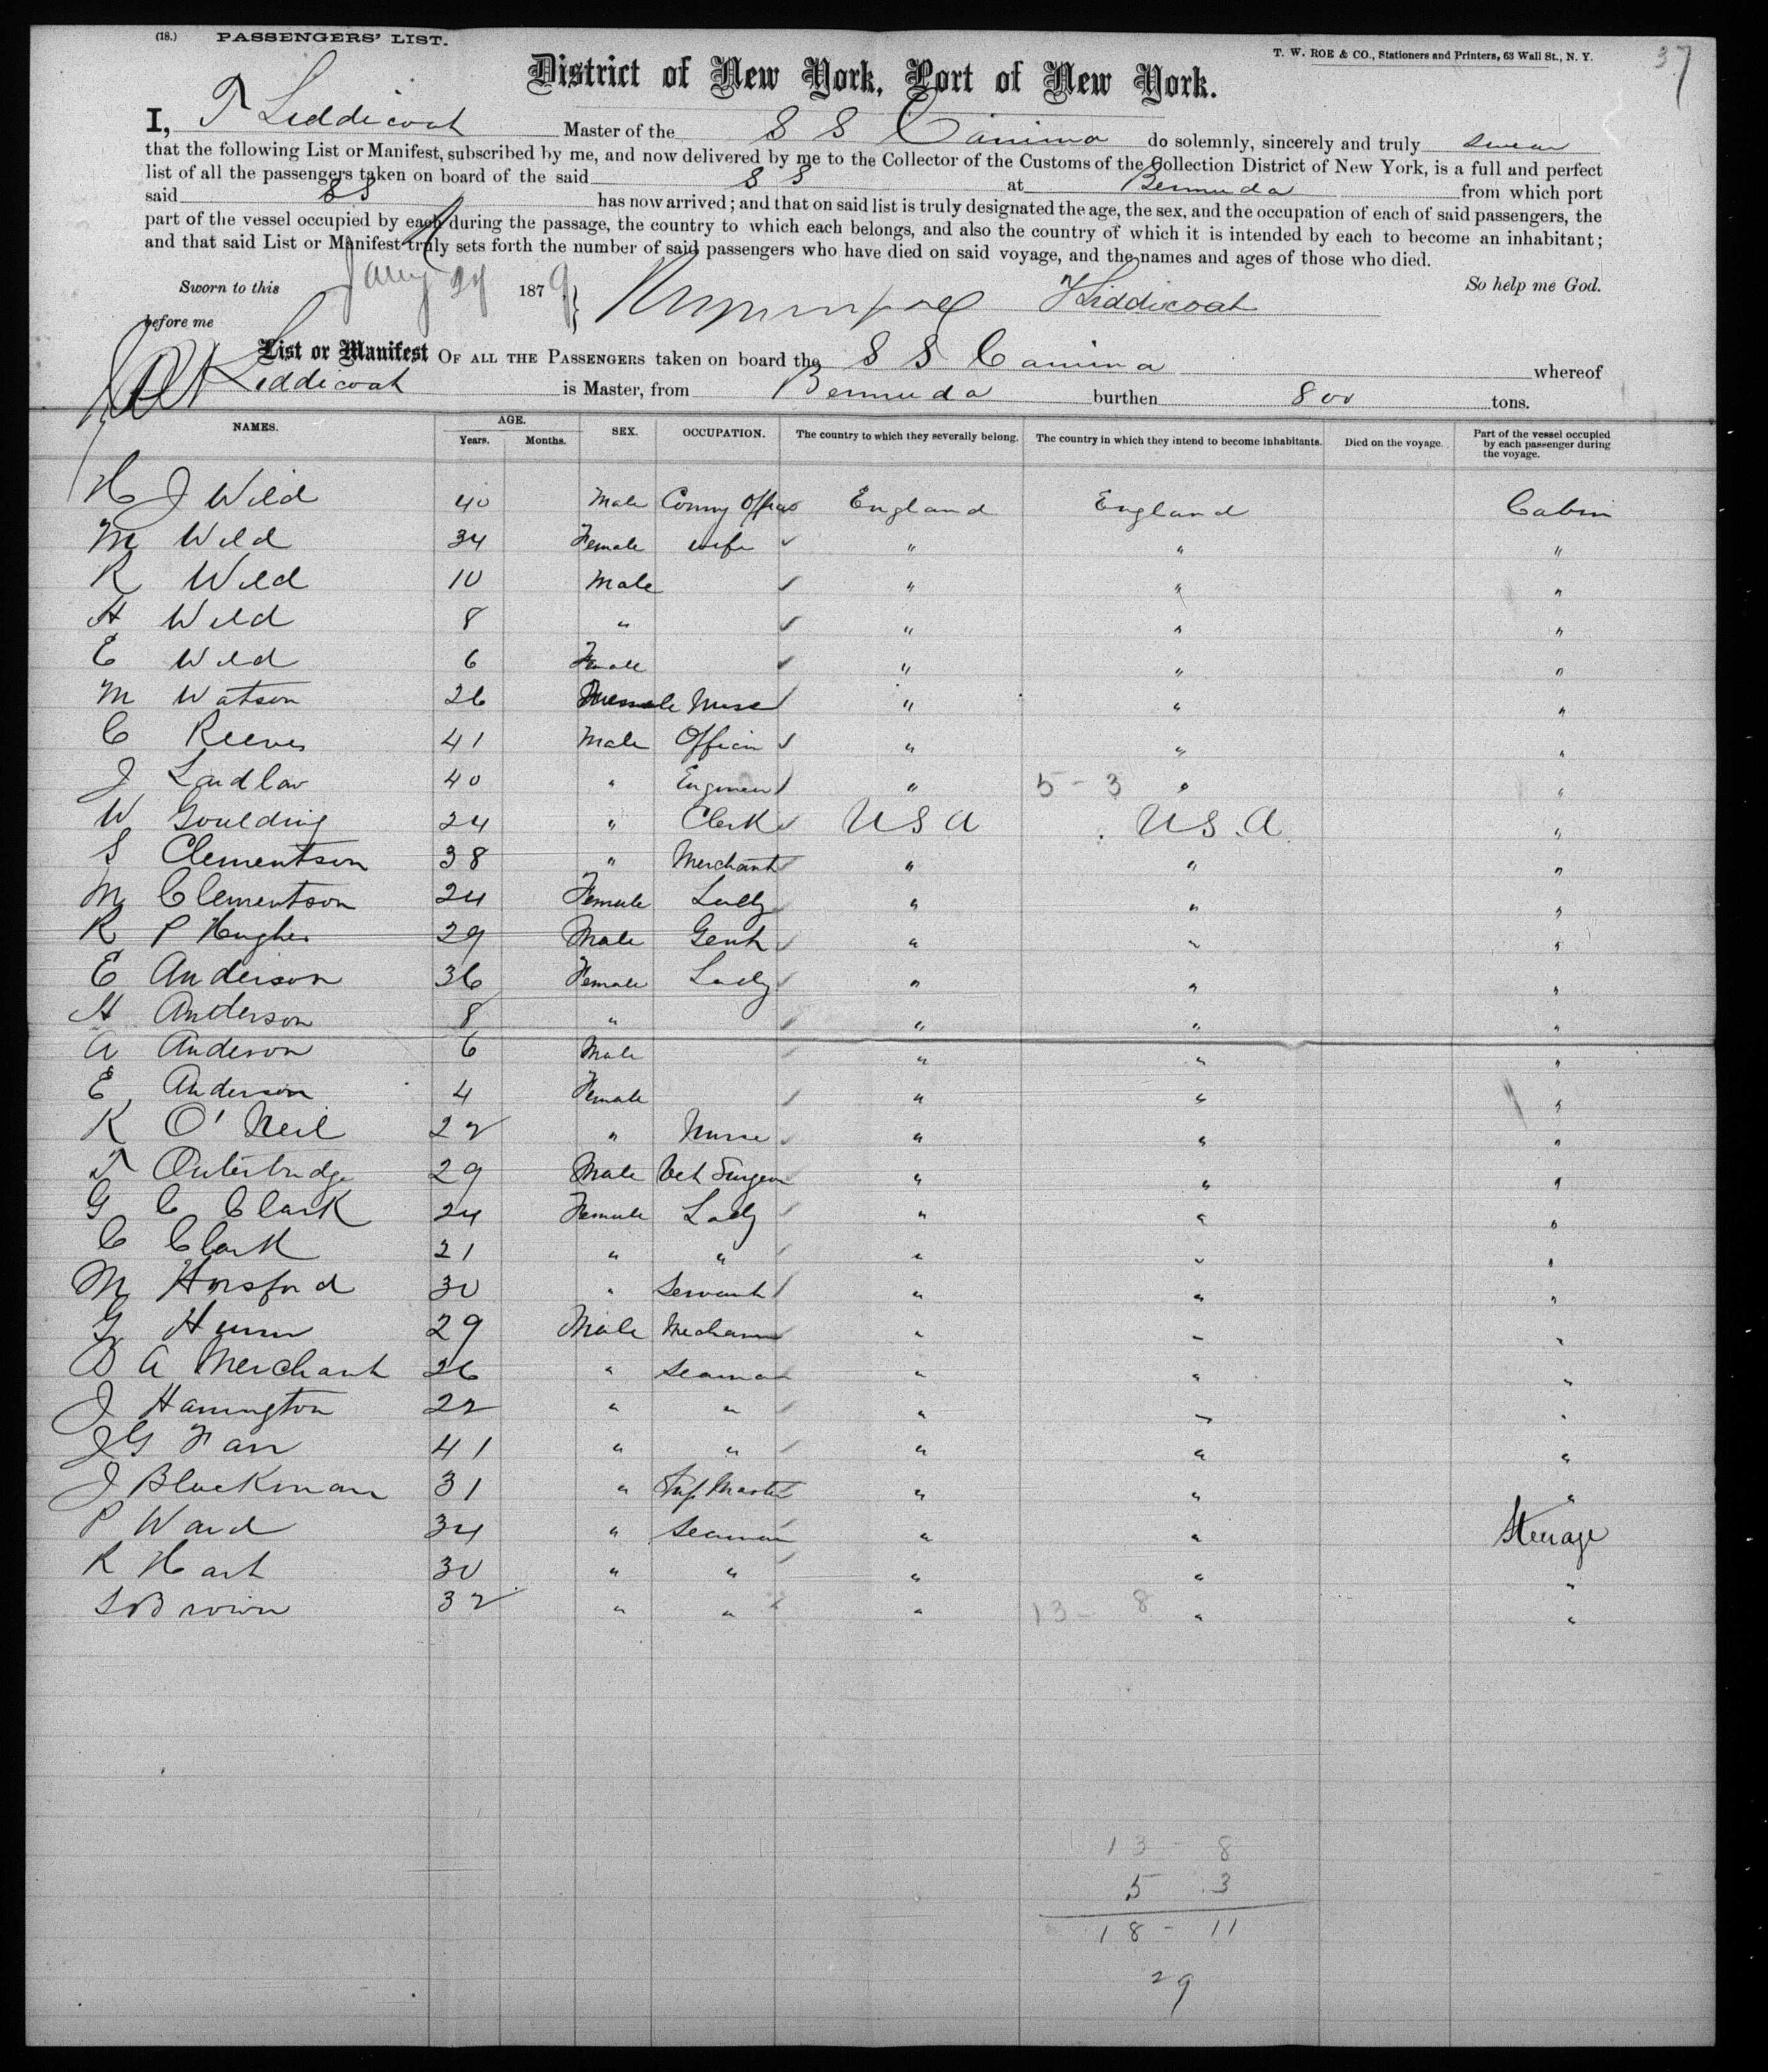 (18.) PASSENGERS' LIST.
T. W. ROE & CO., Stationers and Printers, 63 Wall St., N. Y.
37
District of New York, Port of New York.
I, T Liddicoat Master of the S S Canima do solemnly, sincerely and truly swear
that the following List or Manifest, subscribed by me, and now delivered by me to the Collector of the Customs of the Collection District of New York, is a full and perfect
list of all the passengers taken on board of the said S S at Bermuda from which port
said SS has now arrived; and that on said list is truly designated the age, the sex, and the occupation of each of said passengers, the
part of the vessel occupied by each during the passage, the country to which each belongs, and also the country of which it is intended by each to become an inhabitant;
and that said List or Manifest truly sets forth the number of said passengers who have died on said voyage, and the names and ages of those who died.
So help me God.
Sworn to this Jany 24 1879 } T Liddicoat
before me
List or Manifest OF ALL THE PASSENGERS taken on board the S S Canima whereof
Liddicoat is Master, from Bermuda burthen 800 tons.
NAMES. AGE. Years. Months. SEX. OCCUPATION. The country to which they severally belong. The country in which they intend to become inhabitants. Died on the voyage. Part of the vessel occupied by each passenger during the voyage.
H J Wild 40 Male Commy Officer England England Cabin
M Wild 34 Female wife ✓ " " "
R Wild 10 Male ✓ " " "
A Wild 8 " ✓ " " "
E Wild 6 Female ✓ " " "
M Watson 26 Female Nurse " " "
C Reeves 41 Male Officer ✓ " " "
J Laidlaw 40 " Engineer " 5 - 3 " "
W Goulding 24 " Clerk ✓ U S A U S. A "
S Clementson 38 " Merchant " " "
M Clementson 24 Female Lady " " "
R P Hughes 29 Male Gent ✓ " " "
E Anderson 36 Female Lady " " "
A Anderson 8 " " " "
A Anderson 6 Male " " "
E Anderson 4 Female " " "
K O'Neil 22 " Nurse ✓ " " "
T Outerbridge 29 Male Vet Surgeon " " "
G C Clark 24 Female Lady " " "
C Clark 21 " " " " "
M Horsford 30 " Servant " " "
G Hunn 29 Male Mechanic " " "
B A Merchant 26 " Seaman " " "
J Harrington 22 " " " " "
J G Farr 41 " " " " "
J Blackman 31 " Master " " "
P Ward 34 " Seaman " " Steerage
R Hart 30 " " " " "
S Brown 32 " " " 13 - 8 " "
13 - 8
5 . 3
18 - 11
29